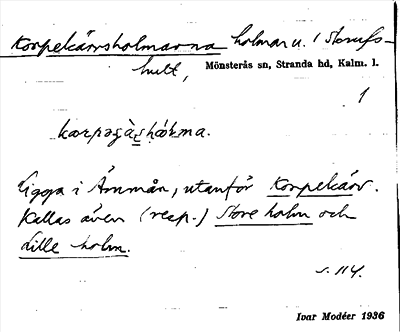 Korpekärrsholmarna holmar u. i Strufs-
hult, Mönsterås sn, Stranda hd, Kalm. l.
1
Ligga i Åmmån, utanför Korpekärr.
Kallas även (resp.) Store holm och
Lille holm.
s. 114.
Ivar Modéer 1936